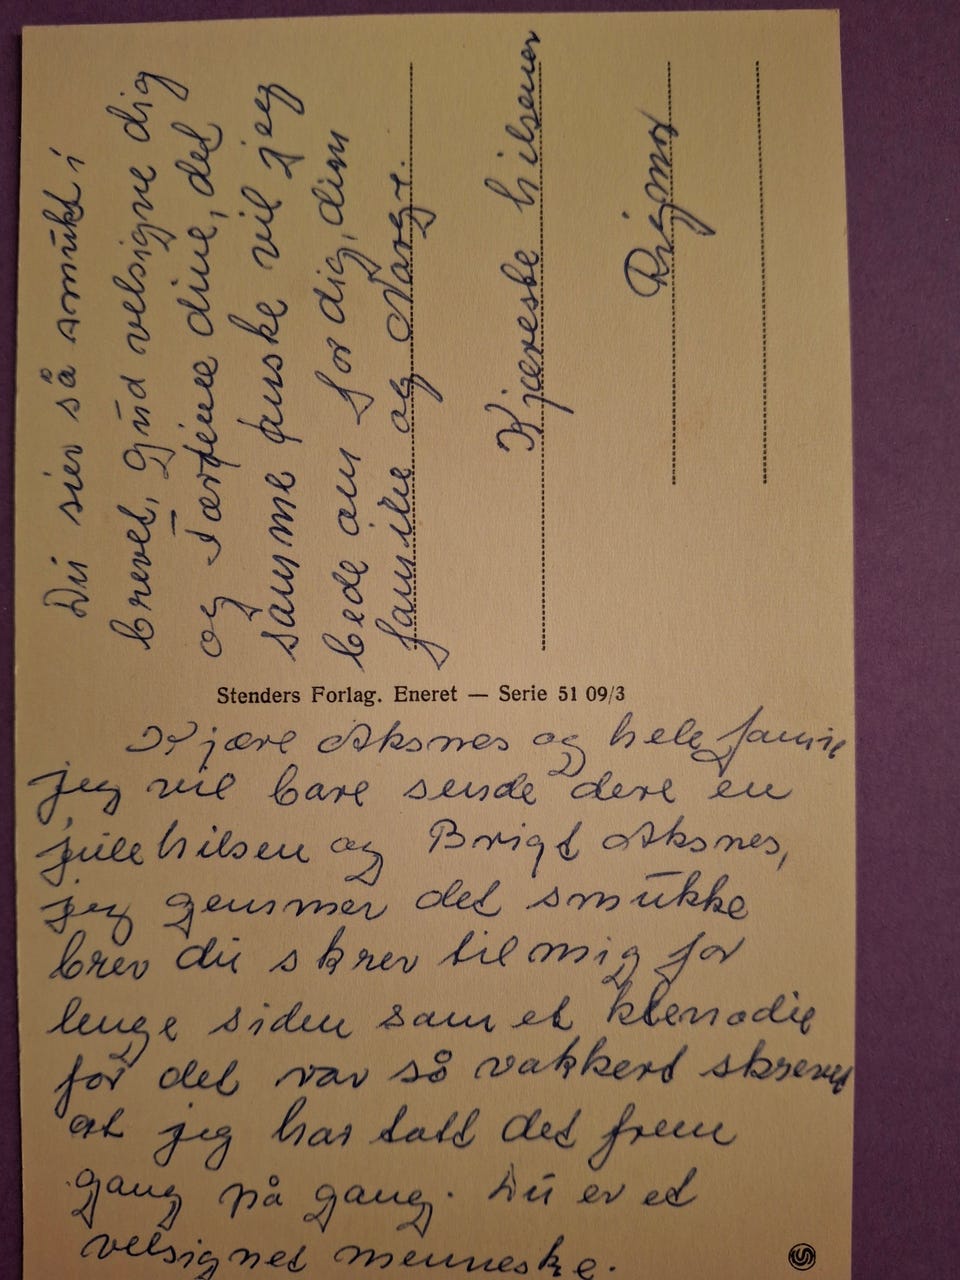 Kjære Aksnes og hele familie
jeg vil bare sende dere en
julehilsen og Brigt Aksnes,
jeg gemmer det smukke
brev du skrev til mig for
lenge siden som et klenodie
for det var så vakkert skrevet
at jeg har tatt det frem
gang på gang. Du er et
velsignet menneske.
Stenders Forlag. Eneret — Serie 51 09/3
Du sier så smukt i
brevet, gud velsigne dig
og Tærfine dine, det
samme ønske vil jeg
bede om for dig, din
familie og Norge.
Kjæreste hilsener
Rigmor